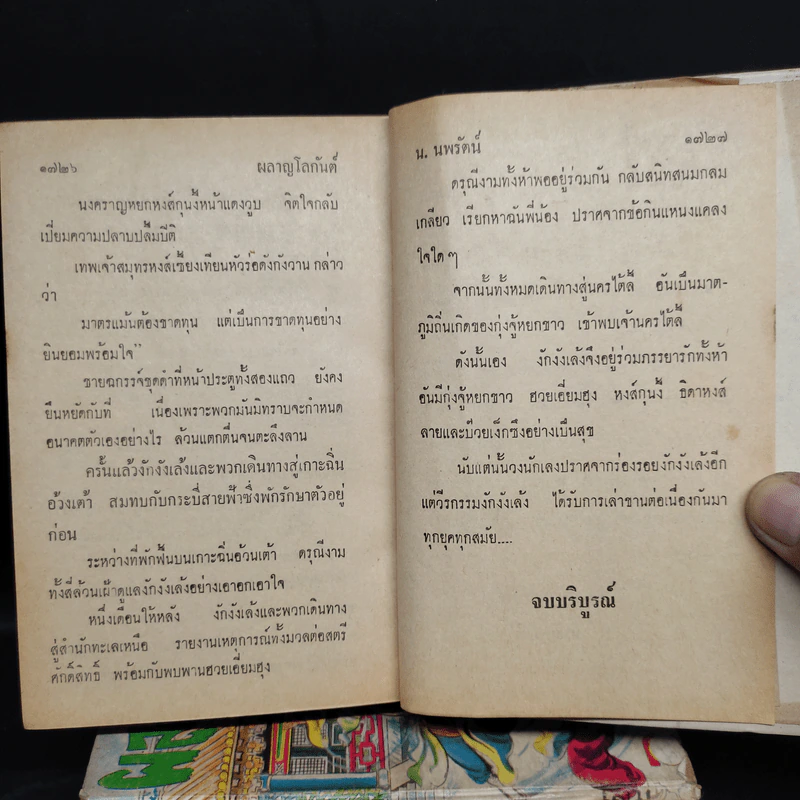 ๑๗๒๖ ผลาญโลกันต์
นงคราญหยกหงส์กุนงี้หน้าแดงวูบ จิตใจกลับ
เปี่ยมความปลาบปลื้มปีติ
เทพเจ้าสมุทรหงส์เซี่ยงเทียนหัวร่อดังกังวาน กล่าว
ว่า
มาตรแม้นต้องขาดทุน แต่เป็นการขาดทุนอย่าง
ยินยอมพร้อมใจ”
ชายฉกรรจ์ชุดดำที่หน้าประตูทั้งสองแถว ยังคง
ยืนหยัดกับที่ เนื่องเพราะพวกมันมิทราบจะกำหนด
อนาคตตัวเองอย่างไร ล้วนแตกตื่นจนตะลึงลาน
ครั้นแล้วงักงังเล้งและพวกเดินทางสู่เกาะฉิ่น
อ้วงเต้า สมทบกับกระบี่สายฟ้าซึ่งพักรักษาตัวอยู่
ก่อน
ระหว่างที่พักฟื้นบนเกาะฉิ่นอ้วนเต้า ดรุณีงาม
ทั้งสี่ล้วนเฝ้าดูแลงักงังเล้งอย่างเอาอกเอาใจ
หนึ่งเดือนให้หลัง งักงังเล้งและพวกเดินทาง
สู่สำนักทะเลเหนือ รายงานเหตุการณ์ทั้งมวลต่อสตรี
ศักดิ์สิทธิ์ พร้อมกับพบพานฮวยเอี่ยมฮุง
น. นพรัตน์ ๑๗๒๗
ดรุณีงามทั้งห้าพออยู่ร่วมกัน กลับสนิทสนมกลม
เกลียว เรียกหาฉันพี่น้อง ปราศจากข้อกินแหนงแคลง
ใจใด ๆ
จากนั้นทั้งหมดเดินทางสู่นครไต้ลี้ อันเป็นมาต-
ภูมิถิ่นเกิดของกุ่งจู้หยกขาว เข้าพบเจ้านครไต้ลี้
ดังนั้นเอง งักงังเล้งจึงอยู่ร่วมภรรยารักทั้งห้า
อันมีกุ่งจู้หยกขาว ฮวยเอี่ยมฮุง หงส์กุนงี้ ธิดาหงส์
ลายและบ๊วยเง็กซึงอย่างเป็นสุข
นับแต่นั้นวงนักเลงปราศจากร่องรอยงักงังเล้งอีก
แต่วีรกรรมงักงังเล้ง ได้รับการเล่าขานต่อเนื่องกันมา
ทุกยุคทุกสมัย....
จบบริบูรณ์